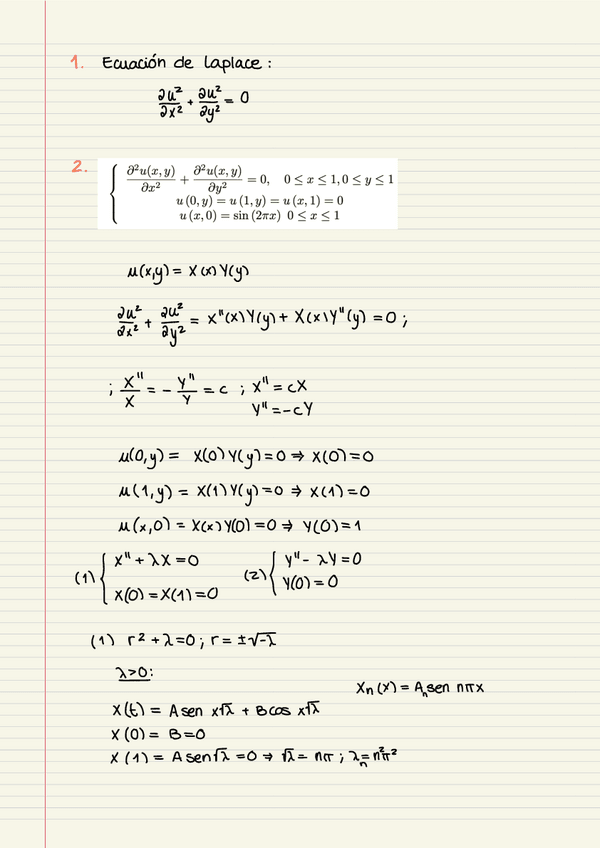 1. Ecuación de Laplace :
∂u²/∂x² + ∂u²/∂y² = 0
2. { ∂²u(x,y)/∂x² + ∂²u(x,y)/∂y² = 0, 0 ≤ x ≤ 1, 0 ≤ y ≤ 1
u (0, y) = u (1, y) = u (x, 1) = 0
u (x, 0) = sin (2πx) 0 ≤ x ≤ 1
u(x,y) = X(x) Y(y)
∂u²/∂x² + ∂u²/∂y² = X''(x) Y(y) + X(x) Y''(y) = 0 ;
; X''/X = - Y''/Y = c ; X'' = cX
Y'' = -cY
u(0,y) = X(0) Y(y) = 0 ⇒ X(0) = 0
u(1,y) = X(1) Y(y) = 0 ⇒ X(1) = 0
u(x,0) = X(x) Y(0) = 0 ⇒ Y(0) = 1
(1) { X'' + λX = 0 (2) { Y'' - λY = 0
X(0) = X(1) = 0 Y(0) = 0
(1) r² + λ = 0 ; r = ±√-λ
λ>0:
Xₙ(x) = Aₙ sen nπx
X(t) = A sen x√λ + B cos x√λ
X(0) = B = 0
X(1) = A sen √λ = 0 ⇒ √λ = nπ ; λₙ = n²π²